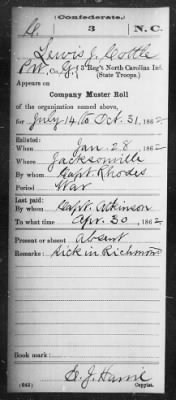 (Confederate.)
C. 3 N. C.
Lewis J. Cottle
Pvt., Co. G, 3 Reg't North Carolina Inf.
(State Troops.)
Appears on
Company Muster Roll
of the organization named above,
for July 14 to Oct. 31, 1862
Enlisted:
When Jan. 28, 1862
Where Jacksonville
By whom Capt. Rhodes
Period War
Last paid:
By whom Capt. Atkinson
To what time Apr. 30, 1862
Present or absent Absent
Remarks: Sick in Richmond
Book mark:
(641) Copyist.